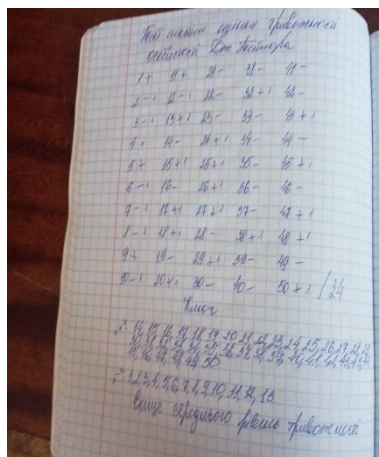 Тест шкали оцінки тривожності
особистості Дж. Тейлора
1+ 11+ 21- 31- 41-
2-1 12-1 22- 32+1 42-
3-1 13+1 23- 33- 43+1
4+ 14- 24+1 34- 44-
5+ 15+1 25+1 35- 45+1
6-1 16- 26+1 36- 46-
7-1 17+1 27+1 37- 47+1
8-1 18+1 28- 38+1 48+1
9+ 19- 29+1 39- 49-
10-1 20+1 30- 40- 50+1 / 24
Ключ
14, 15, 16, 17, 18, 19, 20, 21, 22, 23, 24, 25, 26, 27, 28, 29,
30, 31, 32, 33, 34, 35, 36, 37, 38, 39, 40, 41, 42, 43, 44,
45, 46, 47, 48, 49, 50
1,2,3,4,5,6,7,8,9,10,11,12,13
Вище середнього рівень тривожності